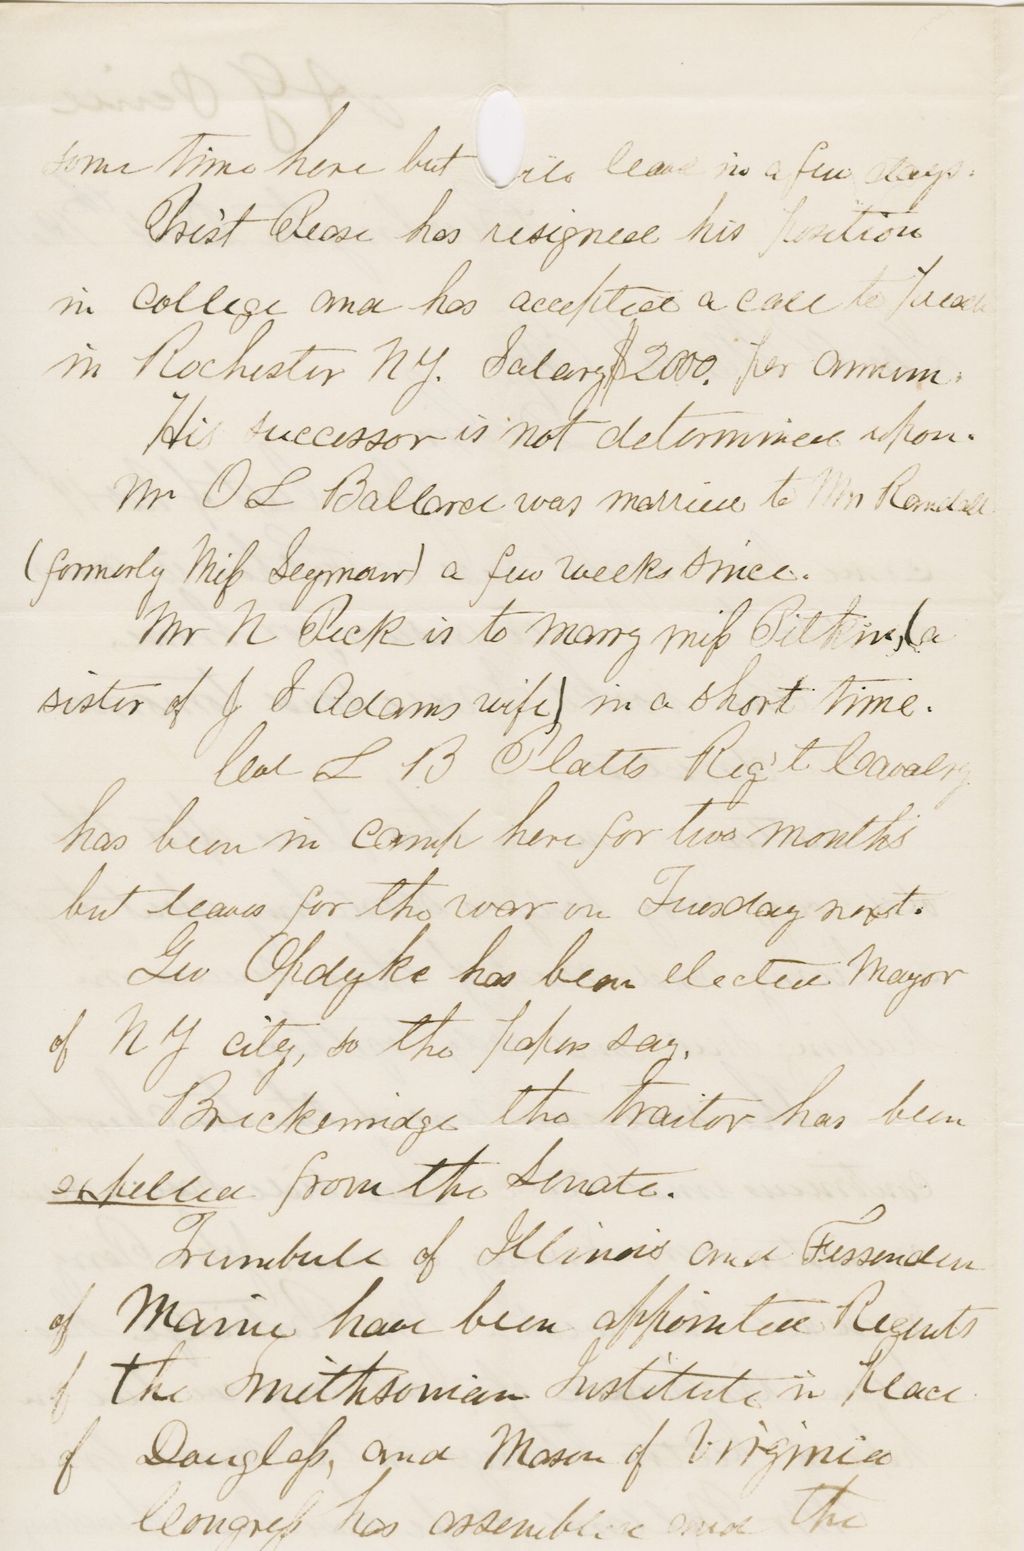 some time here but will leave in a few days.
Prest Pease has resigned his position
in college and has accepted a call to preach
in Rochester N.Y. Salary $2000. per annum.
His successor is not determined upon.
Mr O L Ballard was married to Mrs Randall
(formerly Miss Seymour) a few weeks since.
Mr N Peck is to marry miss Pitkin, (a
sister of J S Adams wife) in a short time.
Col L B Platts Reg't Cavalry
has been in camp here for two months
but leaves for the war on Tuesday next.
Geo Opdyke has been elected Mayor
of N Y city, so the papers say.
Breckenridge the traitor has been
expelled from the Senate.
Trumbull of Illinois and Fessenden
of Maine have been appointed Regents
of the Smithsonian Institute in place
of Douglass, and Mason of Virginia
Congress has assembled and the